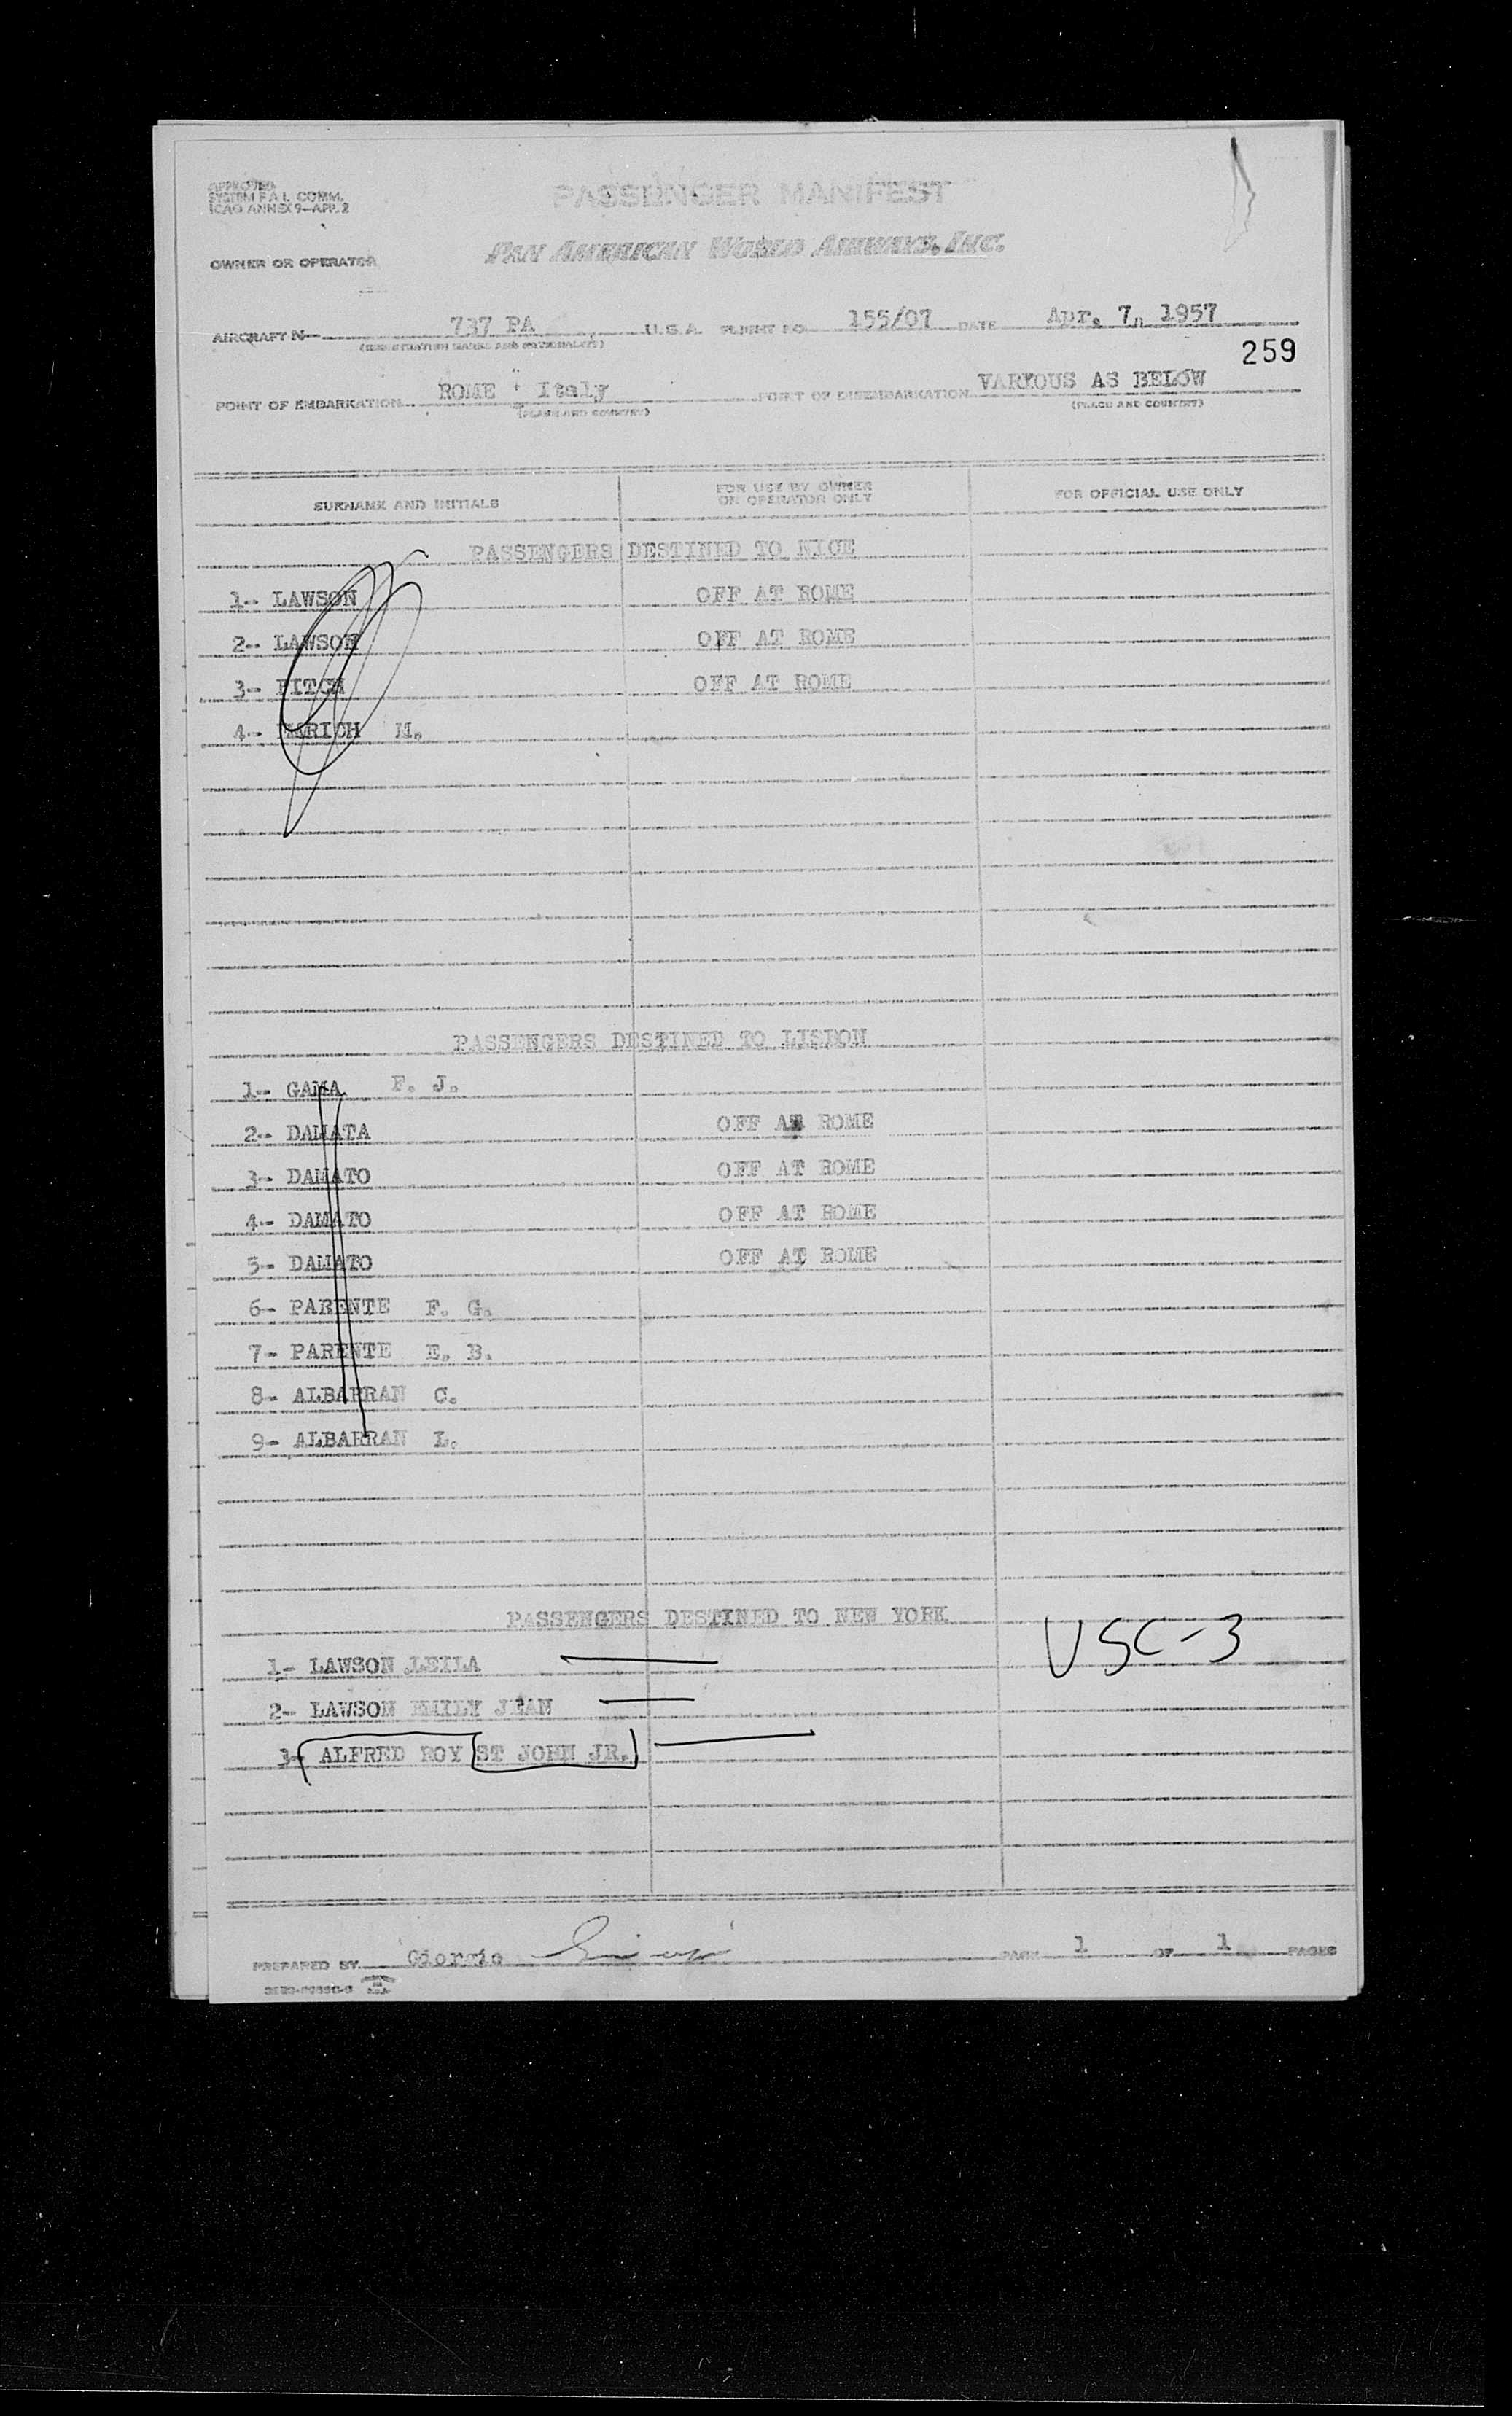 APPROVED
SYSTEM F A L COMM.
ICAO ANNEX 9-APP. 2
PASSENGER MANIFEST
PAN AMERICAN WORLD AIRWAYS, INC.
OWNER OR OPERATOR
AIRCRAFT N 737 PA U.S.A. FLIGHT NO 155/07 DATE Apr. 7, 1957
(REGISTRATION MARKS AND NATIONALITY)
259
POINT OF EMBARKATION ROME : Italy POINT OF DISEMBARKATION VARIOUS AS BELOW
(PLACE AND COUNTRY) (PLACE AND COUNTRY)
SURNAME AND INITIALS FOR USE BY OWNER OR OPERATOR ONLY FOR OFFICIAL USE ONLY
PASSENGERS DESTINED TO NICE
1-- LAWSON OFF AT ROME
2-- LAWSON OFF AT ROME
3- FITCH OFF AT ROME
4- M.
PASSENGERS DESTINED TO LISBON
1-- GAMA F. J.
2-- DAMATA OFF AT ROME
3- DAMATO OFF AT ROME
4-- DAMATO OFF AT ROME
5- DAMATO OFF AT ROME
6- PARENTE F. G.
7- PARENTE E. B.
8- ALBARRAN C.
9- ALBARRAN L.
PASSENGERS DESTINED TO NEW YORK
USC-3
1- LAWSON LEILA
2- LAWSON EMILY JEAN
3- ALFRED ROY ST JOHN JR.
PREPARED BY Giorgio PAGE 1 OF 1 PAGES